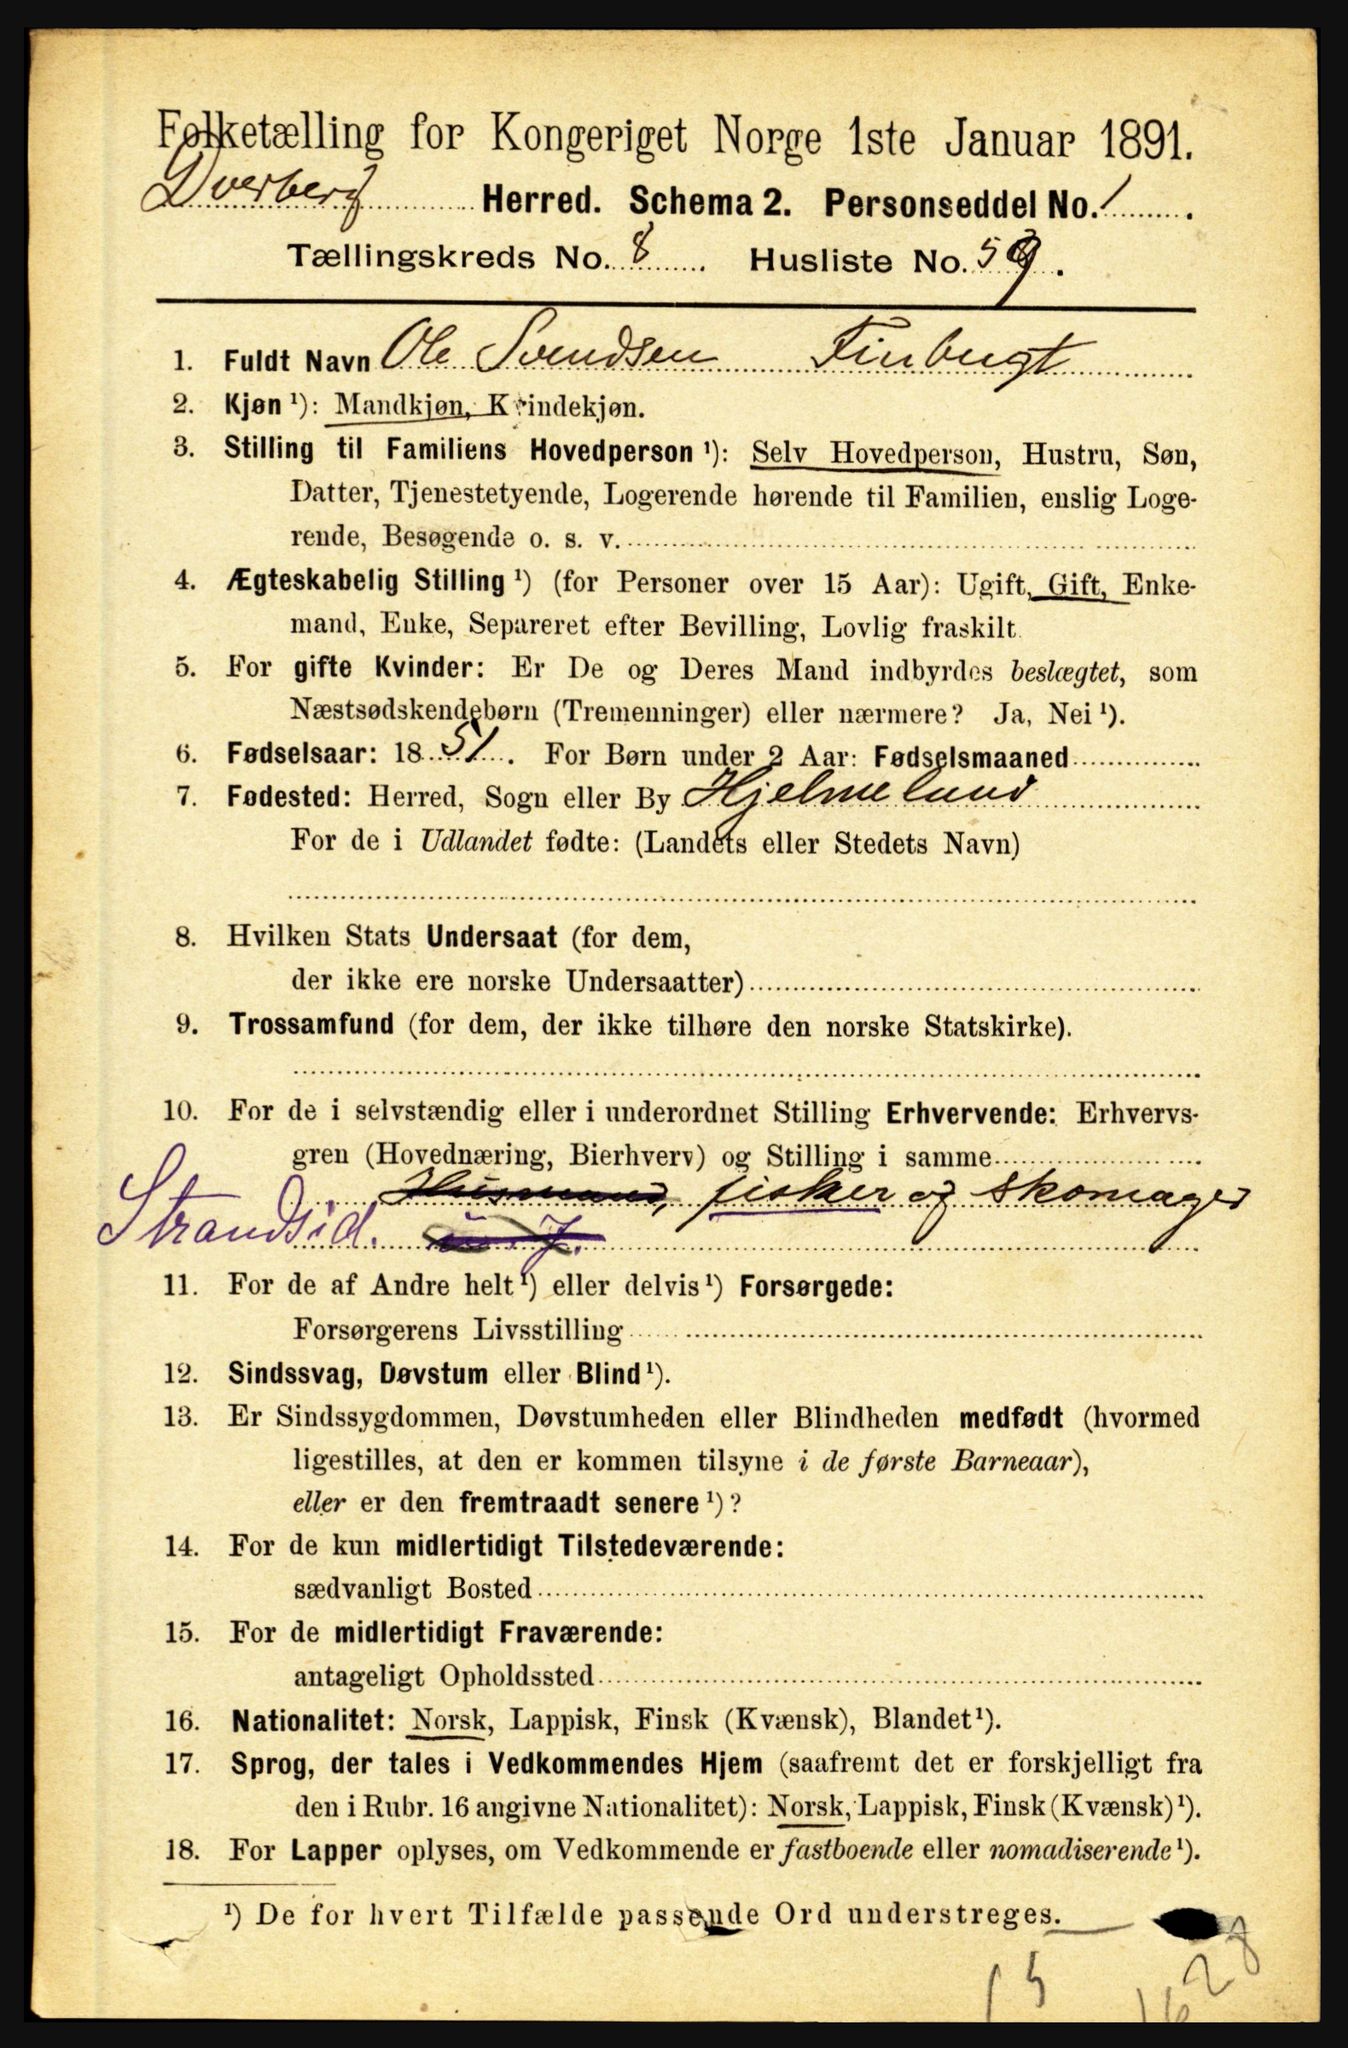 Folketælling for Kongeriget Norge 1ste Januar 1891.
Dverberg Herred. Schema 2. Personseddel No. 1.
Tællingskreds No. 8. Husliste No. 59.
1. Fuldt Navn Ole Svendsen Finbugt
2. Kjøn ¹): Mandkjøn, Kvindekjøn.
3. Stilling til Familiens Hovedperson ¹): Selv Hovedperson, Hustru, Søn,
Datter, Tjenestetyende, Logerende hørende til Familien, enslig Loge-
rende, Besøgende o. s. v.
4. Ægteskabelig Stilling ¹) (for Personer over 15 Aar): Ugift, Gift, Enke-
mand, Enke, Separeret efter Bevilling, Lovlig fraskilt.
5. For gifte Kvinder: Er De og Deres Mand indbyrdes beslægtet, som
Næstsødskendebørn (Tremenninger) eller nærmere? Ja, Nei ¹).
6. Fødselsaar: 1851. For Børn under 2 Aar: Fødselsmaaned
7. Fødested: Herred, Sogn eller By Hjelmeland
For de i Udlandet fødte: (Landets eller Stedets Navn)
8. Hvilken Stats Undersaat (for dem,
der ikke ere norske Undersaatter)
9. Trossamfund (for dem, der ikke tilhøre den norske Statskirke).
10. For de i selvstændig eller i underordnet Stilling Erhvervende: Erhvervs-
gren (Hovednæring, Bierhverv) og Stilling i samme
Husmand, fisker og skomager
Strandsid. u. J.
11. For de af Andre helt ¹) eller delvis ¹) Forsørgede:
Forsørgerens Livsstilling
12. Sindssvag, Døvstum eller Blind ¹).
13. Er Sindssygdommen, Døvstumheden eller Blindheden medfødt (hvormed
ligestilles, at den er kommen tilsyne i de første Barneaar),
eller er den fremtraadt senere ¹)?
14. For de kun midlertidigt Tilstedeværende:
sædvanligt Bosted
15. For de midlertidigt Fraværende:
antageligt Opholdssted
16. Nationalitet: Norsk, Lappisk, Finsk (Kvænsk), Blandet ¹).
17. Sprog, der tales i Vedkommendes Hjem (saafremt det er forskjelligt fra
den i Rubr. 16 angivne Nationalitet): Norsk, Lappisk, Finsk (Kvænsk) ¹).
18. For Lapper oplyses, om Vedkommende er fastboende eller nomadiserende ¹).
¹) De for hvert Tilfælde passende Ord understreges.
15
16 28